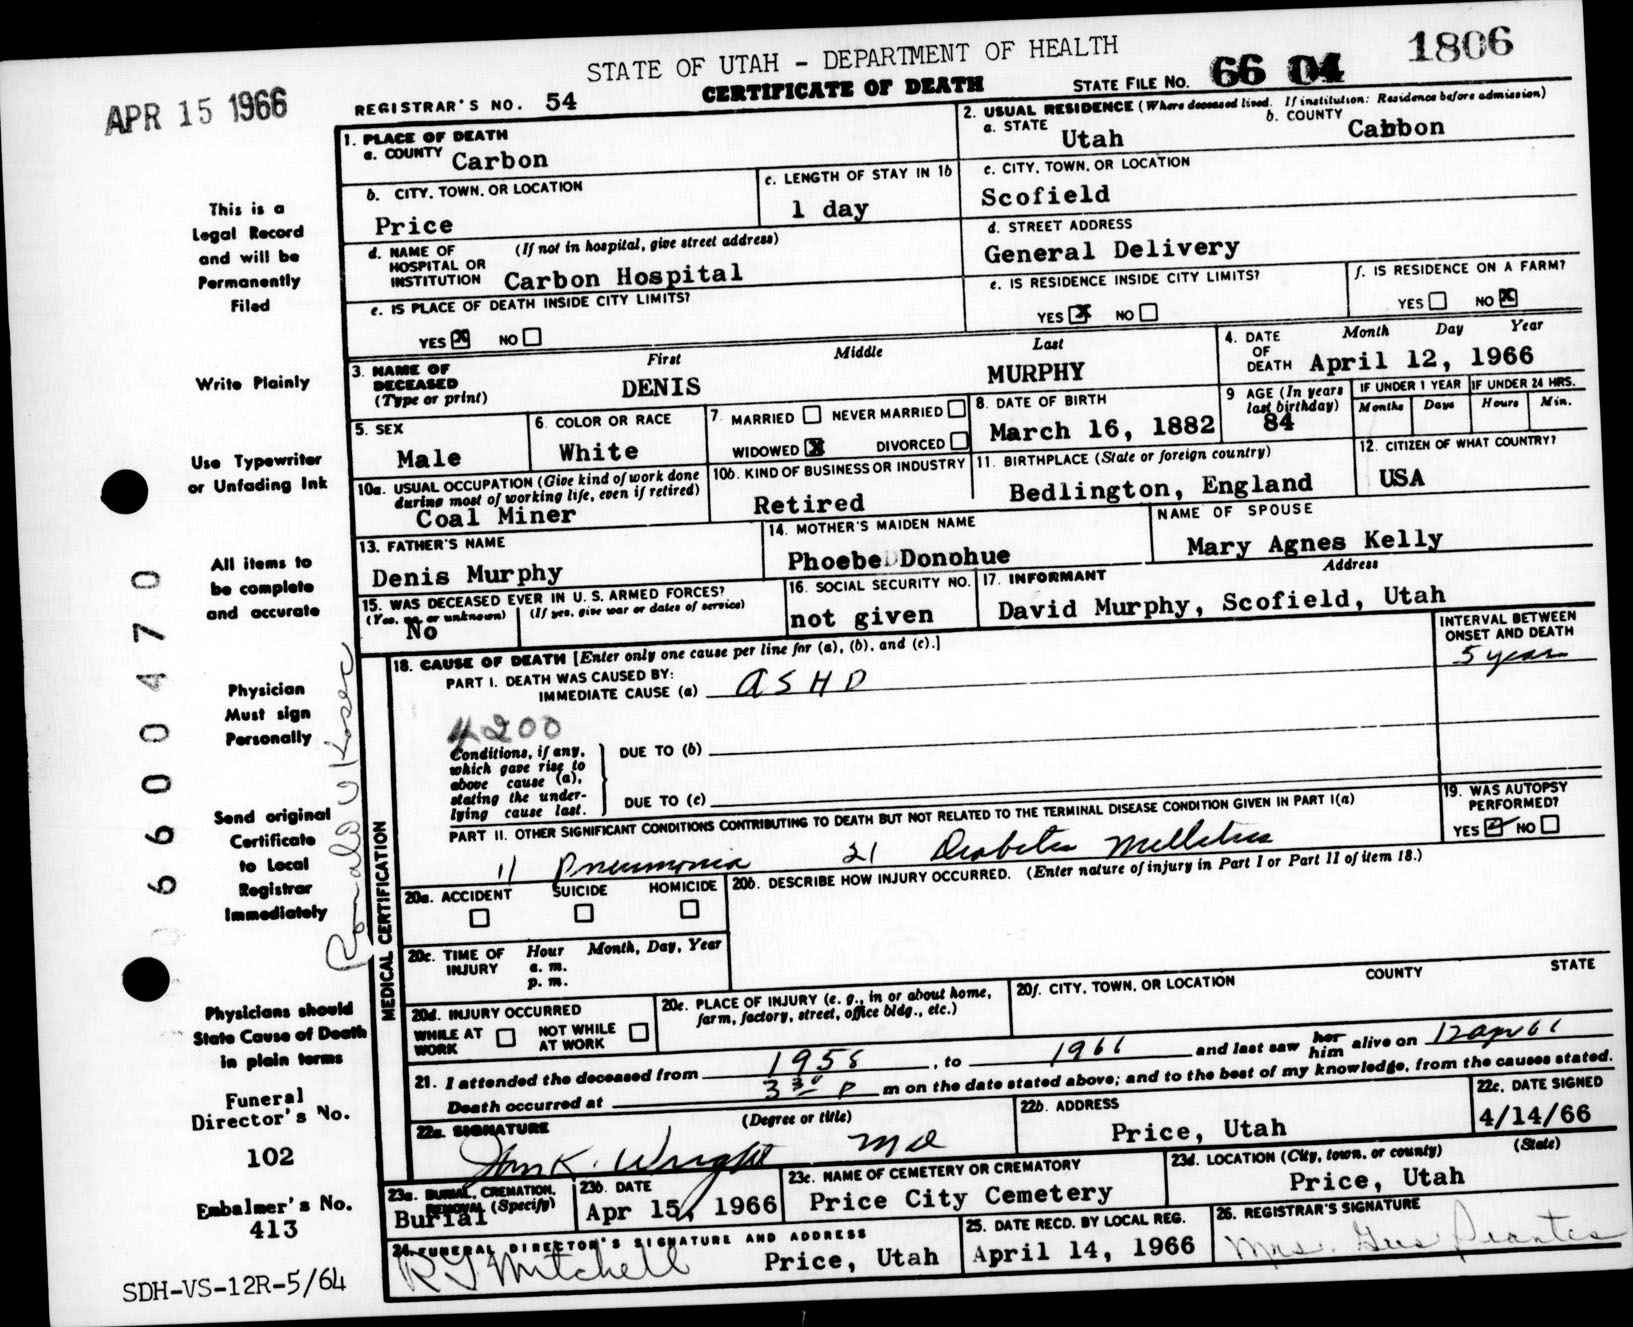 STATE OF UTAH - DEPARTMENT OF HEALTH
1806
APR 15 1966
REGISTRAR'S NO. 54
CERTIFICATE OF DEATH
STATE FILE NO. 66 04
1. PLACE OF DEATH
a. COUNTY Carbon
2. USUAL RESIDENCE (Where deceased lived. If institution: Residence before admission)
a. STATE Utah
b. COUNTY Cabbon
b. CITY, TOWN, OR LOCATION
Price
c. LENGTH OF STAY IN 1b
1 day
c. CITY, TOWN, OR LOCATION
Scofield
d. NAME OF HOSPITAL OR INSTITUTION (If not in hospital, give street address)
Carbon Hospital
d. STREET ADDRESS
General Delivery
e. IS PLACE OF DEATH INSIDE CITY LIMITS?
YES X NO
e. IS RESIDENCE INSIDE CITY LIMITS?
YES X NO
f. IS RESIDENCE ON A FARM?
YES NO X
3. NAME OF DECEASED (Type or print)
First Middle Last
DENIS MURPHY
4. DATE OF DEATH Month Day Year
April 12, 1966
5. SEX
Male
6. COLOR OR RACE
White
7. MARRIED NEVER MARRIED
WIDOWED X DIVORCED
8. DATE OF BIRTH
March 16, 1882
9 AGE (In years last birthday)
84
IF UNDER 1 YEAR
Months Days
IF UNDER 24 HRS.
Hours Min.
10a. USUAL OCCUPATION (Give kind of work done during most of working life, even if retired)
Coal Miner
10b. KIND OF BUSINESS OR INDUSTRY
Retired
11. BIRTHPLACE (State or foreign country)
Bedlington, England
12. CITIZEN OF WHAT COUNTRY?
USA
13. FATHER'S NAME
Denis Murphy
14. MOTHER'S MAIDEN NAME
Phoebe Donohue
NAME OF SPOUSE
Mary Agnes Kelly
15. WAS DECEASED EVER IN U. S. ARMED FORCES?
(Yes, no, or unknown) (If yes, give war or dates of service)
No
16. SOCIAL SECURITY NO.
not given
17. INFORMANT Address
David Murphy, Scofield, Utah
MEDICAL CERTIFICATION
18. CAUSE OF DEATH [Enter only one cause per line for (a), (b), and (c).]
INTERVAL BETWEEN ONSET AND DEATH
PART I. DEATH WAS CAUSED BY:
IMMEDIATE CAUSE (a) ASHD
5 years
4200
Conditions, if any, which gave rise to above cause (a), stating the underlying cause last.
DUE TO (b)
DUE TO (c)
PART II. OTHER SIGNIFICANT CONDITIONS CONTRIBUTING TO DEATH BUT NOT RELATED TO THE TERMINAL DISEASE CONDITION GIVEN IN PART I(a)
1) Pneumonia 2) Diabetes Mellitus
19. WAS AUTOPSY PERFORMED?
YES NO
20a. ACCIDENT SUICIDE HOMICIDE
20b. DESCRIBE HOW INJURY OCCURRED. (Enter nature of injury in Part I or Part II of item 18.)
20c. TIME OF INJURY Hour Month, Day, Year
a. m.
p. m.
20d. INJURY OCCURRED
WHILE AT WORK NOT WHILE AT WORK
20e. PLACE OF INJURY (e. g., in or about home, farm, factory, street, office bldg., etc.)
20f. CITY, TOWN, OR LOCATION COUNTY STATE
21. I attended the deceased from 1958, to 1966 and last saw her him alive on 12 Apr 66
Death occurred at 3 30 P m on the date stated above; and to the best of my knowledge, from the causes stated.
22a. SIGNATURE (Degree or title)
Wright MD
22b. ADDRESS
Price, Utah
22c. DATE SIGNED
4/14/66
23a. BURIAL, CREMATION, REMOVAL (Specify)
Burial
23b. DATE
Apr 15, 1966
23c. NAME OF CEMETERY OR CREMATORY
Price City Cemetery
23d. LOCATION (City, town, or county) (State)
Price, Utah
24. FUNERAL DIRECTOR'S SIGNATURE AND ADDRESS
R G Mitchell Price, Utah
25. DATE RECD. BY LOCAL REG.
April 14, 1966
26. REGISTRAR'S SIGNATURE
Mrs. Gus
This is a
Legal Record
and will be
Permanently
Filed
Write Plainly
Use Typewriter
or Unfading Ink
All items to
be complete
and accurate
Physician
Must sign
Personally
Send original
Certificate
to Local
Registrar
Immediately
Physicians should
State Cause of Death
in plain terms
Funeral
Director's No.
102
Embalmer's No.
413
SDH-VS-12R-5/64
6600470
Ronald V